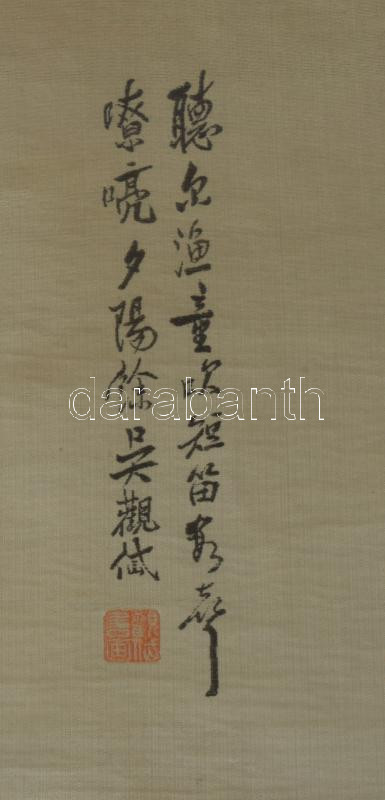 聽尔漁童吹短笛數聲
嘹喨夕陽餘吳觀岱
darabanth